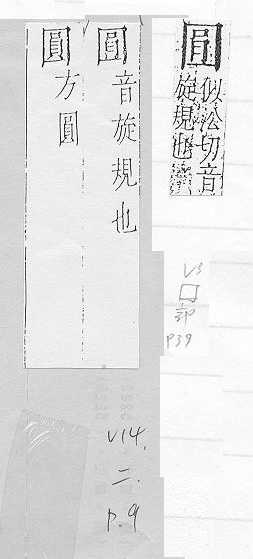 圓似㳂切音
旋規也
圓音旋規也
圓方圓
V3
囗
部
P39
V14.
二.
p.9